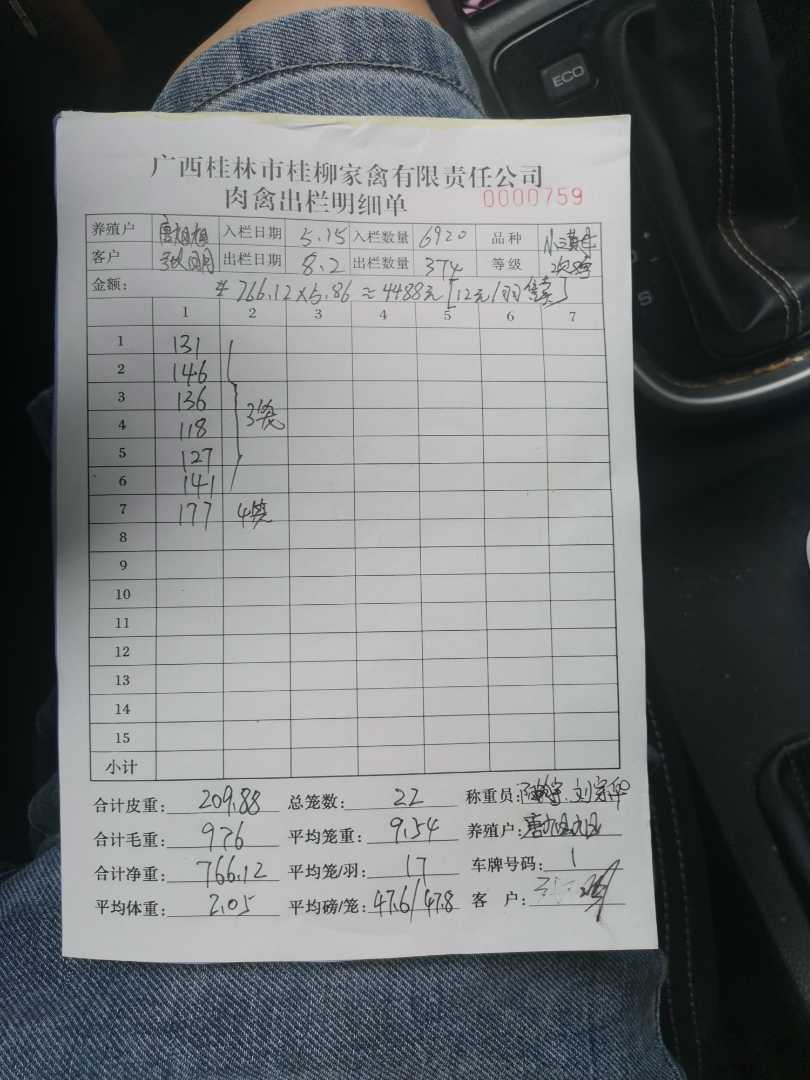 ECO
广西桂林市桂柳家禽有限责任公司
肉禽出栏明细单 0000759
养殖户 入栏日期 5.15 入栏数量 6920 品种
客户 出栏日期 8.2 出栏数量 374 等级
金额: 766.12×5.86≈4488元[12元/羽 ]
1 2 3 4 5 6 7
1 131
2 146
3 136 3笼
4 118
5 127
6 141
7 177 4笼
8
9
10
11
12
13
14
15
小计
合计皮重: 209.88 总笼数: 22 称重员:
合计毛重: 976 平均笼重: 9.54 养殖户:
合计净重: 766.12 平均笼/羽: 17 车牌号码: 1
平均体重: 2.05 平均磅/笼: 47.6/47.8 客 户:
S